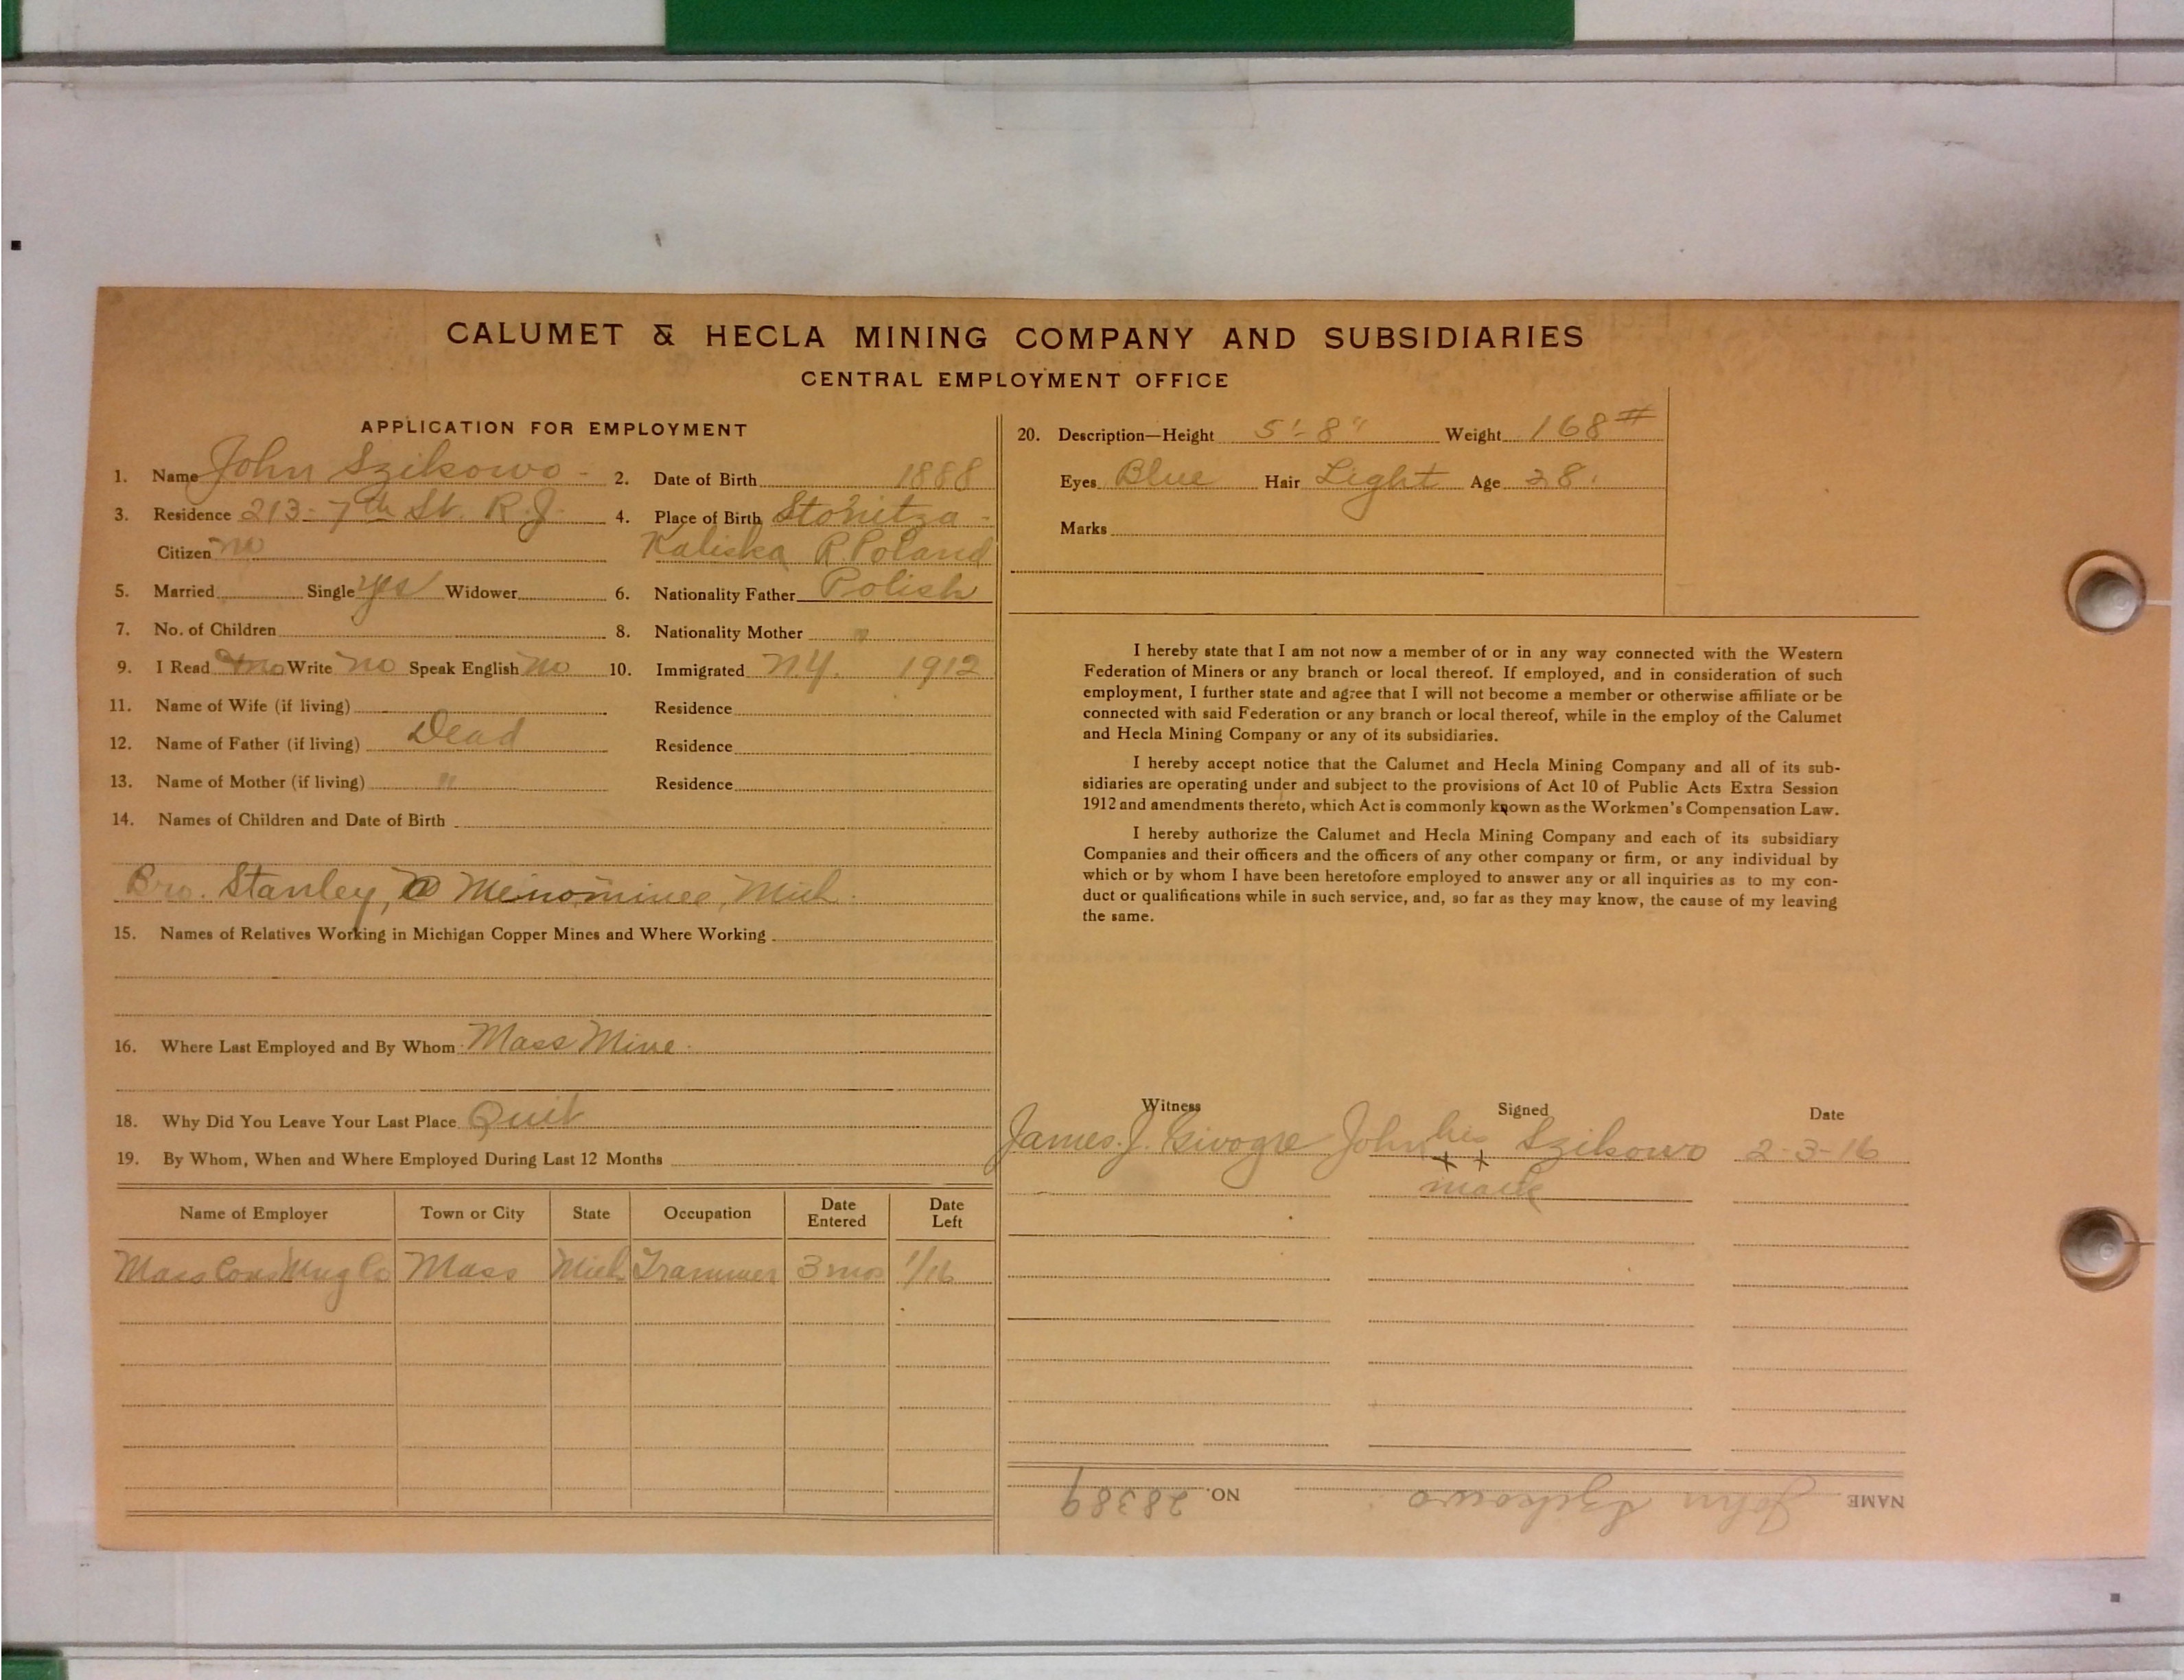 CALUMET & HECLA MINING COMPANY AND SUBSIDIARIES
CENTRAL EMPLOYMENT OFFICE
APPLICATION FOR EMPLOYMENT
1. Name John Szikowo - 2. Date of Birth 1888
3. Residence 213-7th St. R.J. 4. Place of Birth Stonitza -
Citizen no Kaliska R. Poland
5. Married Single yes Widower 6. Nationality Father Polish
7. No. of Children 8. Nationality Mother "
9. I Read no Write no Speak English no 10. Immigrated N.Y. 1912
11. Name of Wife (if living) Residence
12. Name of Father (if living) Dead Residence
13. Name of Mother (if living) " Residence
14. Names of Children and Date of Birth
Bro. Stanley, @ Menominee, Mich.
15. Names of Relatives Working in Michigan Copper Mines and Where Working
16. Where Last Employed and By Whom Mass Mine.
18. Why Did You Leave Your Last Place Quit
19. By Whom, When and Where Employed During Last 12 Months
Name of Employer Town or City State Occupation Date Entered Date Left
Mass Cons Mng Co Mass Mich Trammer 3 mos 1/16
20. Description—Height 5'-8" Weight 168#
Eyes Blue Hair Light Age 28.
Marks
I hereby state that I am not now a member of or in any way connected with the Western
Federation of Miners or any branch or local thereof. If employed, and in consideration of such
employment, I further state and agree that I will not become a member or otherwise affiliate or be
connected with said Federation or any branch or local thereof, while in the employ of the Calumet
and Hecla Mining Company or any of its subsidiaries.
I hereby accept notice that the Calumet and Hecla Mining Company and all of its sub-
sidiaries are operating under and subject to the provisions of Act 10 of Public Acts Extra Session
1912 and amendments thereto, which Act is commonly known as the Workmen's Compensation Law.
I hereby authorize the Calumet and Hecla Mining Company and each of its subsidiary
Companies and their officers and the officers of any other company or firm, or any individual by
which or by whom I have been heretofore employed to answer any or all inquiries as to my con-
duct or qualifications while in such service, and, so far as they may know, the cause of my leaving
the same.
Witness Signed Date
James. J. John his Szikowo 2-3-16
x x
mark
NAME John Szikowo. NO. 28389